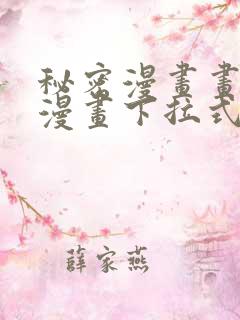 秘密漫畫畫
漫畫下拉式
薛家燕